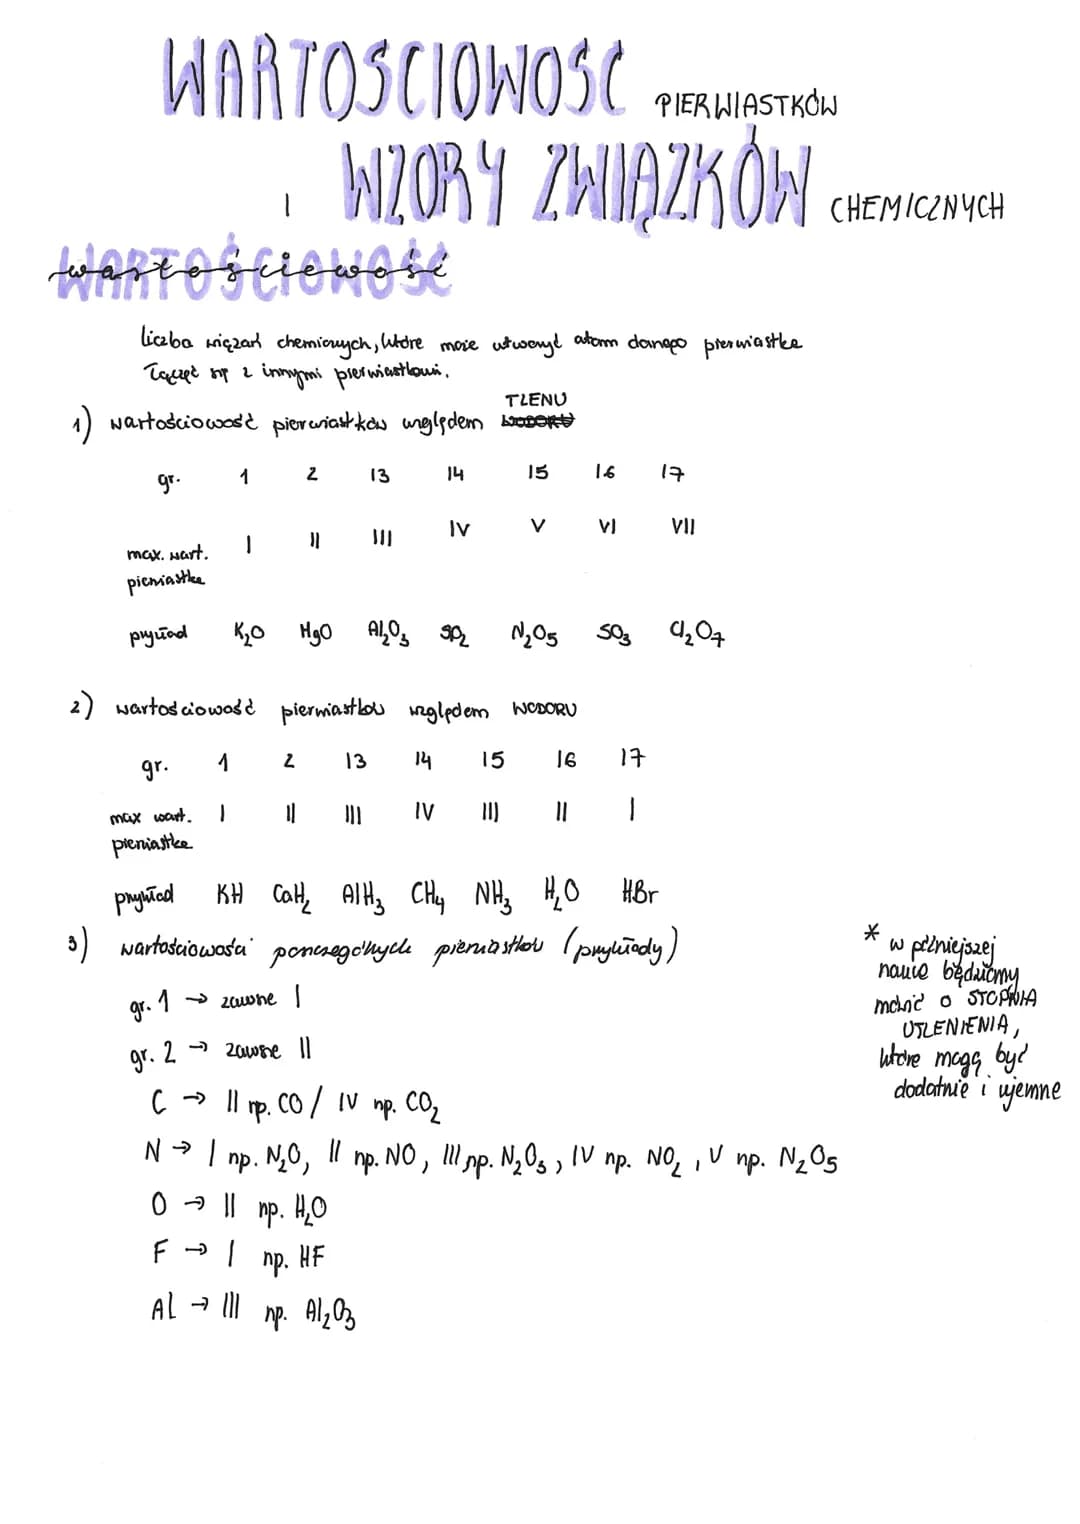 WARTOSCIOWOSC PIERWIASTKÓW
I WZORY ZWIĄZKÓW CHEMICZNYCH
WARTOŚCIOWOŚĆ
wartościowość
liczba wiązań chemicznych, które może utworzyć atom danego pierwiastka
łącząc się z innymi pierwiastkami.
1) wartościowość pierwiastków względem TLENU
gr. 1 2 13 14 15 16 17
max. wart. I II III IV V VI VII
pierwiastka
przykład K₂O HgO Al₂O₃ SO₂ N₂O₅ SO₃ Cl₂O₇
2) wartościowość pierwiastków względem WODORU
gr. 1 2 13 14 15 16 17
max wart. I II III IV III II I
pierwiastka
przykład KH CaH₂ AlH₃ CH₄ NH₃ H₂O HBr
3) wartościowości poszczególnych pierwiastków (przykłady)
gr. 1 → zawsze I
gr. 2 → zawsze II
C → II np. CO / IV np. CO₂
N → I np. N₂O, II np. NO, III np. N₂O₃, IV np. NO₂, V np. N₂O₅
O → II np. H₂O
F → I np. HF
Al → III np. Al₂O₃
* w późniejszej
nauce będziemy
mówić o STOPNIA
UTLENIENIA,
które mogą być
dodatnie i ujemne